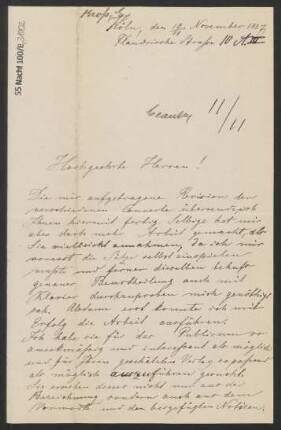 55 Nachl 100/B,
Köln, den 12/11 November 1887
Flandrische Straße 10 A III
11/11
Hochgeehrte Herren!
Die mir aufgetragene Revision der
Concerte übersende ich
Ihnen hiermit fertig. Selbige hat mir
aber doch mehr Arbeit gemacht, als
Sie vielleicht annahmen, da ich mir
vorerst die Sätze selbst einspielen
mußte und ferner dieselben behufs
genauer Beurtheilung auch mit
Klavier durchzuproben mich genöthigt
sah. Alsdann erst konnte ich mit
Erfolg die Arbeit ausführen.
Ich habe sie für das Publicum so
zweckmäßig und interessant als möglich
und für Ihren geschätzten Verlag so passend
als möglich auszuführen gesucht.
Sie ersehen dieses nicht nur aus der
Bezeichnung sondern auch aus dem
Vorworte und den beigefügten Notizen.